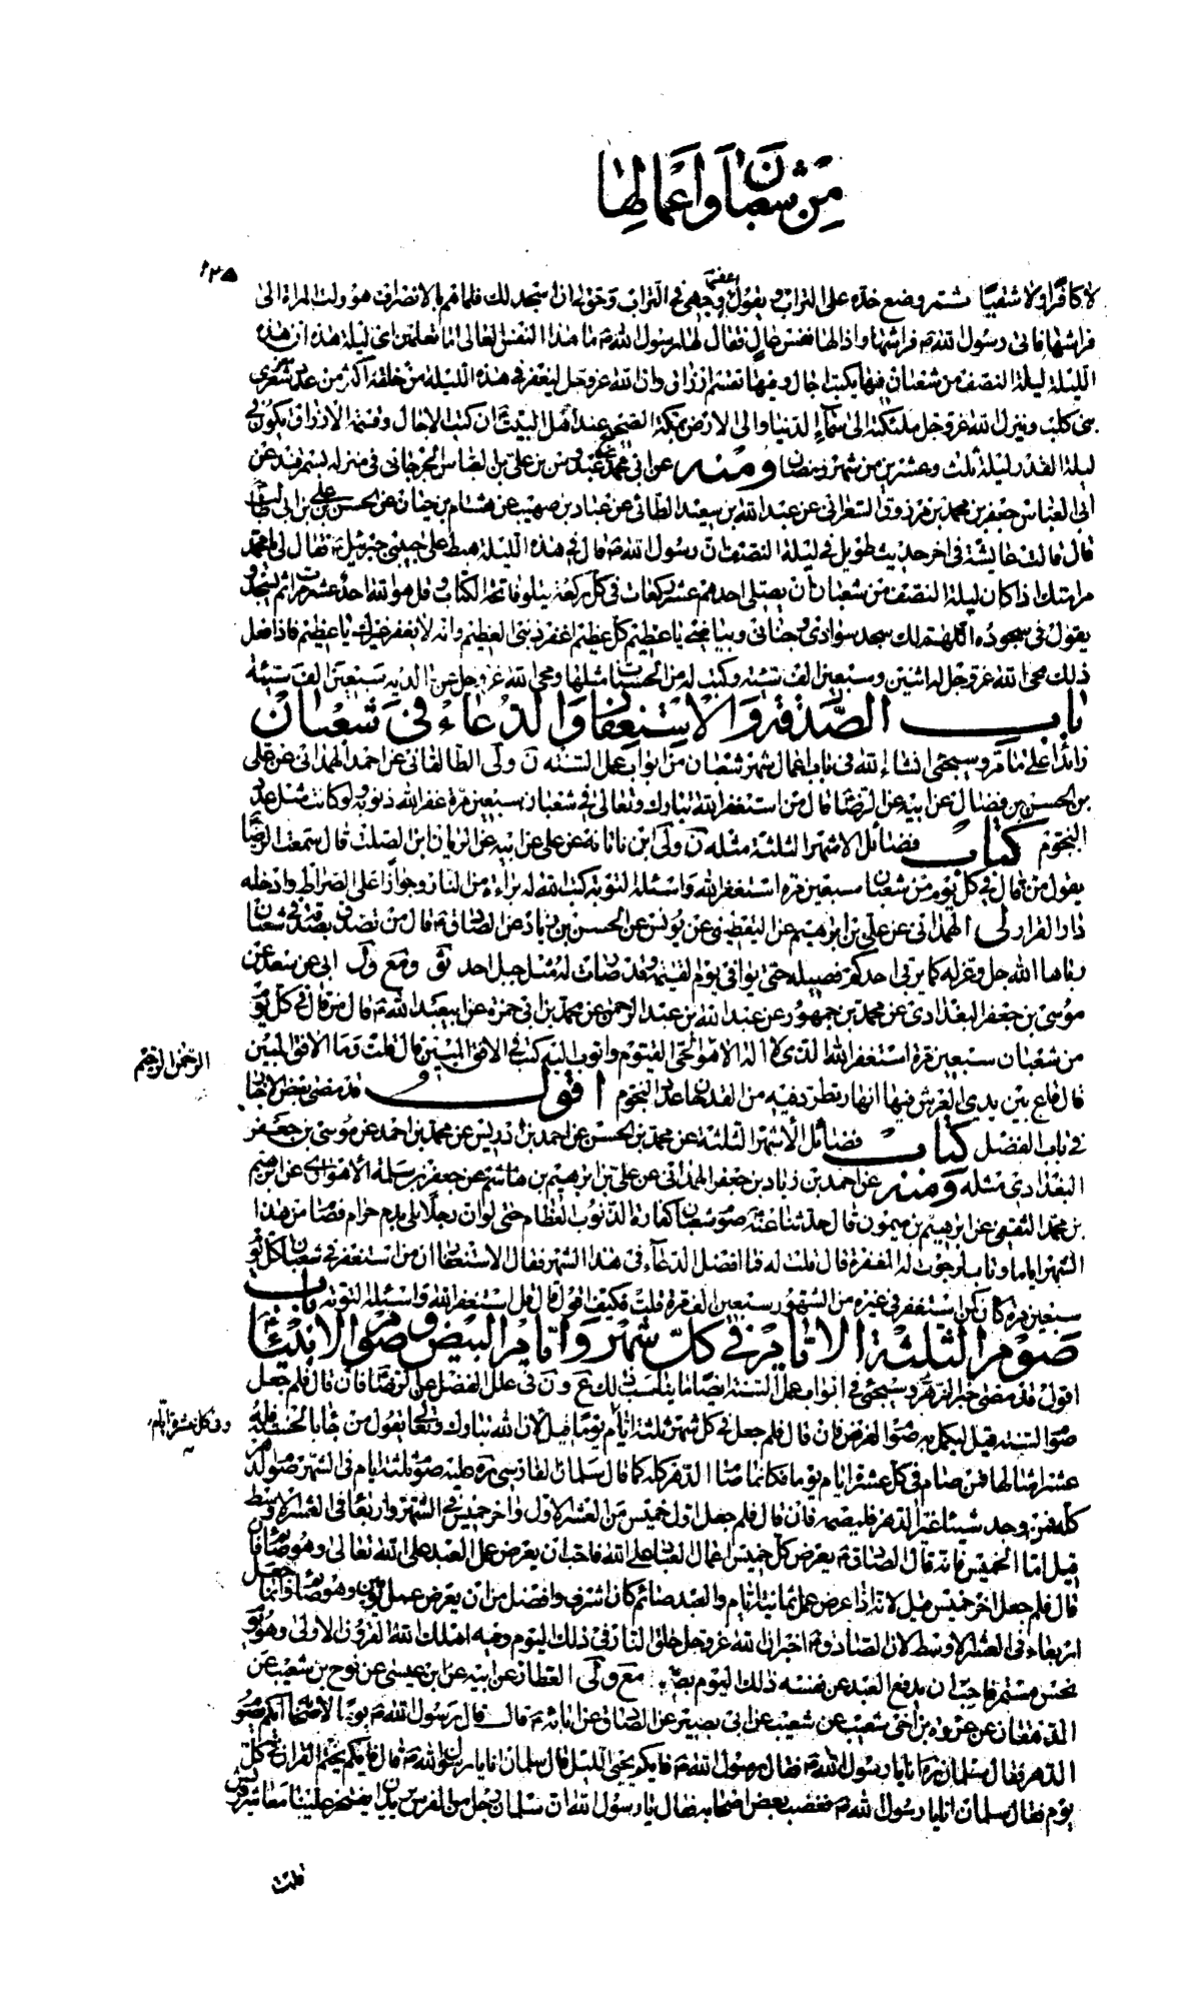 من شعبان و اعمالها
١٢٥
لا كافرا ولا شقيا ثم وضع خده على التراب ويقول اعفر وجهي في التراب وحق له ان اسجد لك فلما هم بالانصراف هرولت المراة الى
فراشها فاتى رسول الله ص فراشها واذا لها نفس عال فقال لها رسول الله ص ما هذا النفس العالى اما تعلمين اى ليلة هذه ان هذه
الليلة ليلة النصف من شعبان فيها يكتب اجال وفيها تقسم ارزاق وان الله عز وجل ليغفر في هذه الليلة من خلقه اكثر من عدد شعر معزى
بني كلب وينزل الله عز وجل ملئكته الى سماء الدنيا والى الارض بمكة الصحيح عند اهل البيت ع ان كتب الاجال وقسمة الارزاق يكون في
ليلة القدر ليلة ثلث وعشرين من شهر رمضان ومنه عن ابى محمد عبدوس بن على بن العباس الجرجانى في منزله بسمرقند عن
ابى العباس جعفر بن محمد بن مرزوق الشعرانى عن عبد الله بن سعيد الطائى عن عباد بن صهيب عن هشام بن حيان عن الحسن بن على بن ابى طالب
قال قالت عايشة في اخر حديث طويل في ليلة النصف ان رسول الله ص قال في هذه الليلة هبط على حبيبى جبرئيل ع فقال لى يا محمد
مر امتك اذا كان ليلة النصف من شعبان ان يصلى احدهم عشر ركعات في كل ركعة يتلو فاتحة الكتاب وقل هو الله احد عشر مرات ثم يسجد و
يقول في سجوده اللهم لك سجد سوادى وجنانى وبياضى يا عظيم كل عظيم اغفر ذنبى العظيم وانه لا يغفر غيرك يا عظيم فاذا فعل
ذلك محى الله عز وجل له اثنين وسبعين الف سيئة وكتب له من الحسنات مثلها ومحى الله عز وجل عن والديه سبعين الف سيئة
باب الصدقة والاستغفار والدعاء في شعبان
زائدا على ما مر وسيجئ انشاء الله في باب اعمال شهر شعبان من ابواب عمل السنة ن ولى الطالقانى عن احمد الهمدانى عن على
بن الحسن بن فضال عن ابيه عن الرضا قال من استغفر الله تبارك وتعالى في شعبان سبعين مرة غفر الله ذنوبه ولو كانت مثل عدد
النجوم كتاب فضائل الاشهر الثلثة مثله ن ولى ابن ناتانه عن على عن ابيه عن الريان ابن الصلت قال سمعت الرضا
يقول من قال في كل يوم من شعبان سبعين مرة استغفر الله واسئله التوبة كتب الله له براءة من النار وجوازا على الصراط وادخله
دار القرار لى الهمدانى عن على بن ابرهيم عن اليقطينى عن يونس عن الحسن بن زياد عن الصادق ع قال من تصدق بصدقة في شعبان
رباها الله جل وعز له كما يربى احدكم فصيله حتى يوافى يوم القيمة وقد صارت له مثل جبل احد ثو ومع ول ابى عن سعد عن
موسى بن جعفر البغدادى عن محمد بن جمهور عن عبد الله بن عبد الرحمن عن محمد بن ابى حمزة عن ابيعبد الله ع قال من قال في كل يوم
من شعبان سبعين مرة استغفر الله الذى لا اله الا هو الحى القيوم واتوب اليه كتب في الافق المبين قال قلت وما الافق المبين
الرحمن الرحيم
قال قاع بين يدى العرش فيها انهار تطرد فيه من القدحان عدد النجوم اقول قد مضى بعض الاخبار
في باب الفضل كتاب فضائل الاشهر الثلثة عن محمد بن الحسن عن احمد بن ادريس عن محمد بن احمد عن موسى بن جعفر
البغدادى مثله ومنه عن احمد بن زياد بن جعفر الهمدانى عن على بن ابرهيم بن هاشم عن جعفر بن سلمة الاهوازى عن ابرهيم
بن محمد الثقفى عن ابرهيم بن ميمون قال حدثنا عنه صوم شعبان كفارة الذنوب العظام حتى لو ان رجلا بلى بدم حرام فصام من هذا
الشهر اياما وتاب لرجوت له المغفرة قال قلت له فما افضل الدعاء في هذا الشهر فقال الاستغفار ان من استغفر في شعبان كل يوم
سبعين مرة كان كمن استغفر في غيره من الشهور سبعين الف مرة قلت فكيف اقول قال قل استغفر الله واسئله التوبة باب
صوم الثلثة الايام في كل شهر وايام البيض وصوم الانبياء
اقول قد مضى خبر الزهرى وسيجئ في ابواب عمل السنة ايضا ما يناسب ذلك ع ون في علل الفضل عن الرضا فان قال فلم جعل
صوم السنة قيل ليكمل به صوم الفرض فان قال فلم جعل في كل شهر ثلثة ايام يوما قيل لان الله تبارك وتعالى يقول من جاء بالحسنة فله
وفي كل عشرة ايام
عشر امثالها فمن صام في كل عشرة ايام يوما فكانما صام الدهر كله كما قال سلمان الفارسى رحمة الله عليه صوم ثلثة ايام في الشهر صوم الدهر
كله فمن وجد شيئا غير الدهر فليصمه فان قال فلم جعل اول خميس من العشر الاول واخر خميس في الشهر واربعاء في العشر الاوسط
قيل اما الخميس فانه قال الصادق ع يعرض كل خميس اعمال العباد على الله فاحب ان يعرض عمل العبد على الله تعالى وهو صائم فان
قال فلم جعل اخر خميس قيل لانه اذا عرض عمل ثمانية ايام والعبد صائم كان اشرف وافضل من ان يعرض عمل يومين وهو صائم وانما جعل
اربعاء في العشر الاوسط لان الصادق ع اخبر ان الله عز وجل خلق النار في ذلك اليوم وفيه اهلك الله القرون الاولى وهو يوم
نحس مستمر فاحب ان يدفع العبد عن نفسه ذلك اليوم بصومه مع ولى العطار عن ابيه عن ابن عيسى عن نوح بن شعيب عن
الدهقان عن عروة بن اخى شعيب عن شعيب عن ابى بصير عن الصادق عن ابائه ع قال قال رسول الله ص يوما لاصحابه ايكم يصوم
الدهر فقال سلمان ره انا يا رسول الله ص فقال رسول الله ص فايكم يحيى الليل قال سلمان انا يا رسول الله ص قال فايكم يختم القران في كل
يوم فقال سلمان انا يا رسول الله ص فغضب بعض اصحابه فقال يا رسول الله ان سلمان رجل من الفرس يريد ان يفتخر علينا معاشر قريش
قلت